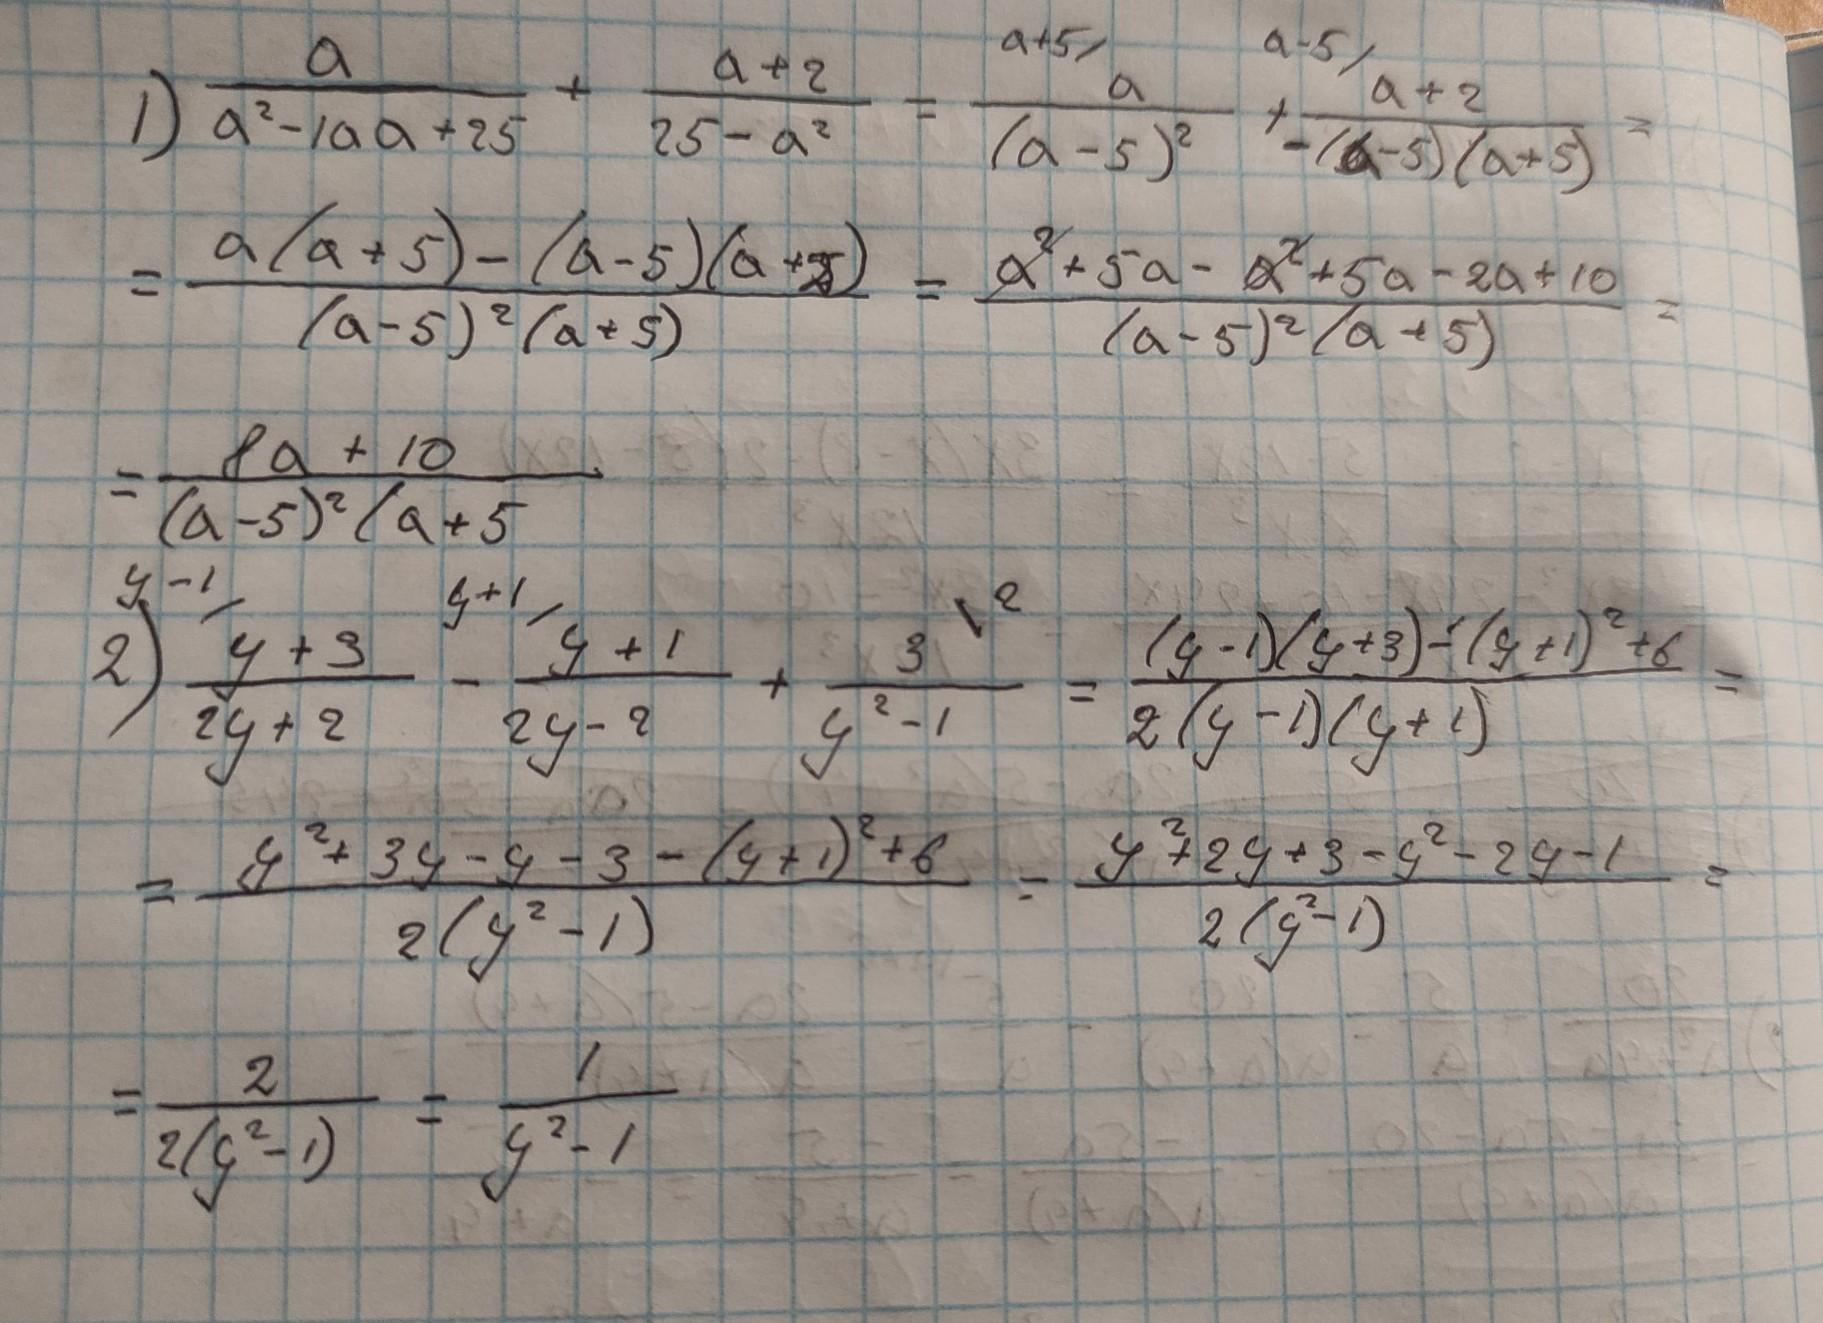 1) a/(a²-10a+25) + (a+2)/(25-a²) = a+5/ a/(a-5)² + a-5/ (a+2)/(-(a-5)(a+5)) =
= (a(a+5)-(a-5)(a+2))/((a-5)²(a+5)) = (a²+5a-a²+5a-2a+10)/((a-5)²(a+5)) =
= (8a+10)/((a-5)²(a+5
2) y-1/ (y+3)/(2y+2) - y+1/ (y+1)/(2y-2) + 3/(y²-1) \2 = ((y-1)(y+3)-(y+1)²+6)/(2(y-1)(y+1)) =
= (y²+3y-y-3-(y+1)²+6)/(2(y²-1)) = (y²+2y+3-y²-2y-1)/(2(y²-1)) =
= 2/(2(y²-1)) = 1/(y²-1)